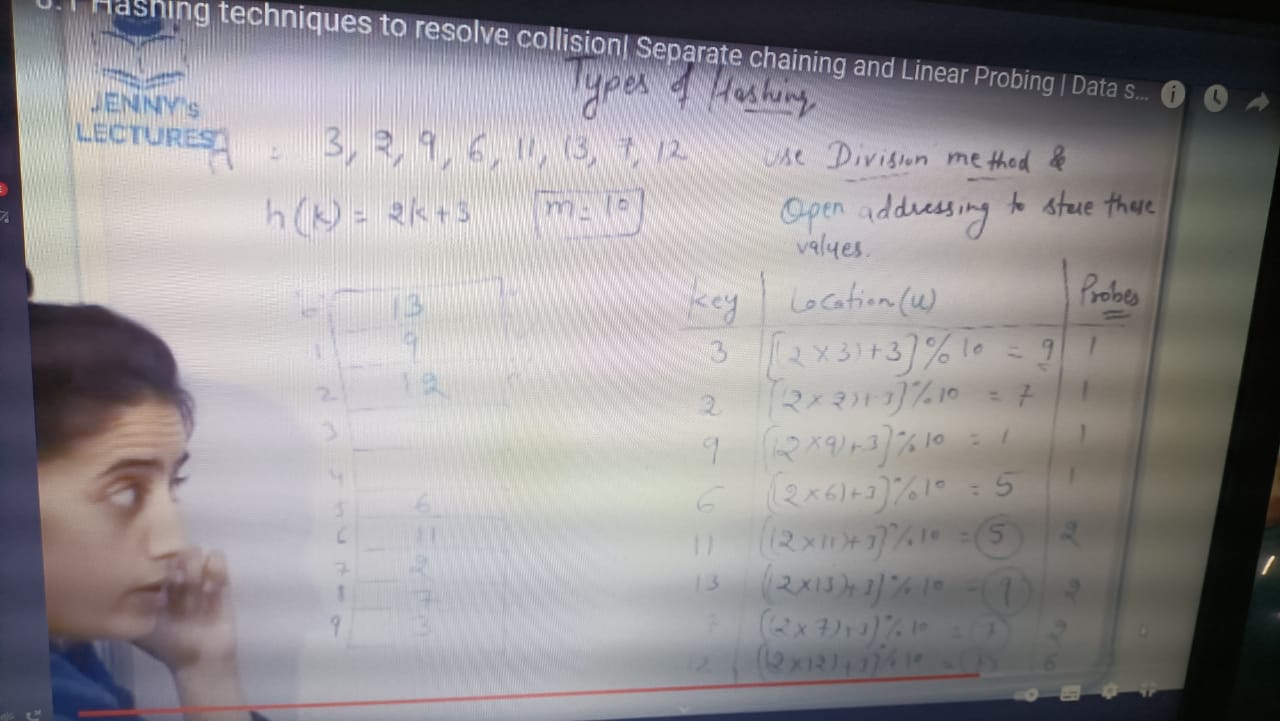 Hashing techniques to resolve collision| Separate chaining and Linear Probing | Data s...
JENNY's
LECTURES
Types of Hashing
A = 3, 2, 9, 6, 11, 13, 7, 12
h(k) = 2k+3 m=10
use Division method &
Open addressing to store these
values.
0 13
1 9
2 12
3
4
5 6
6 11
7 2
8 7
9 3
key Location(u) Probes
3 [(2×3)+3]%10 = 9 1
2 [(2×2)+3]%10 = 7 1
9 [(2×9)+3]%10 = 1 1
6 [(2×6)+3]%10 = 5 1
11 [(2×11)+3]%10 = 5 2
13 [(2×13)+3]%10 = 9 2
7 [(2×7)+3]%10 = 7 2
12 [(2×12)+3]%10 = 6